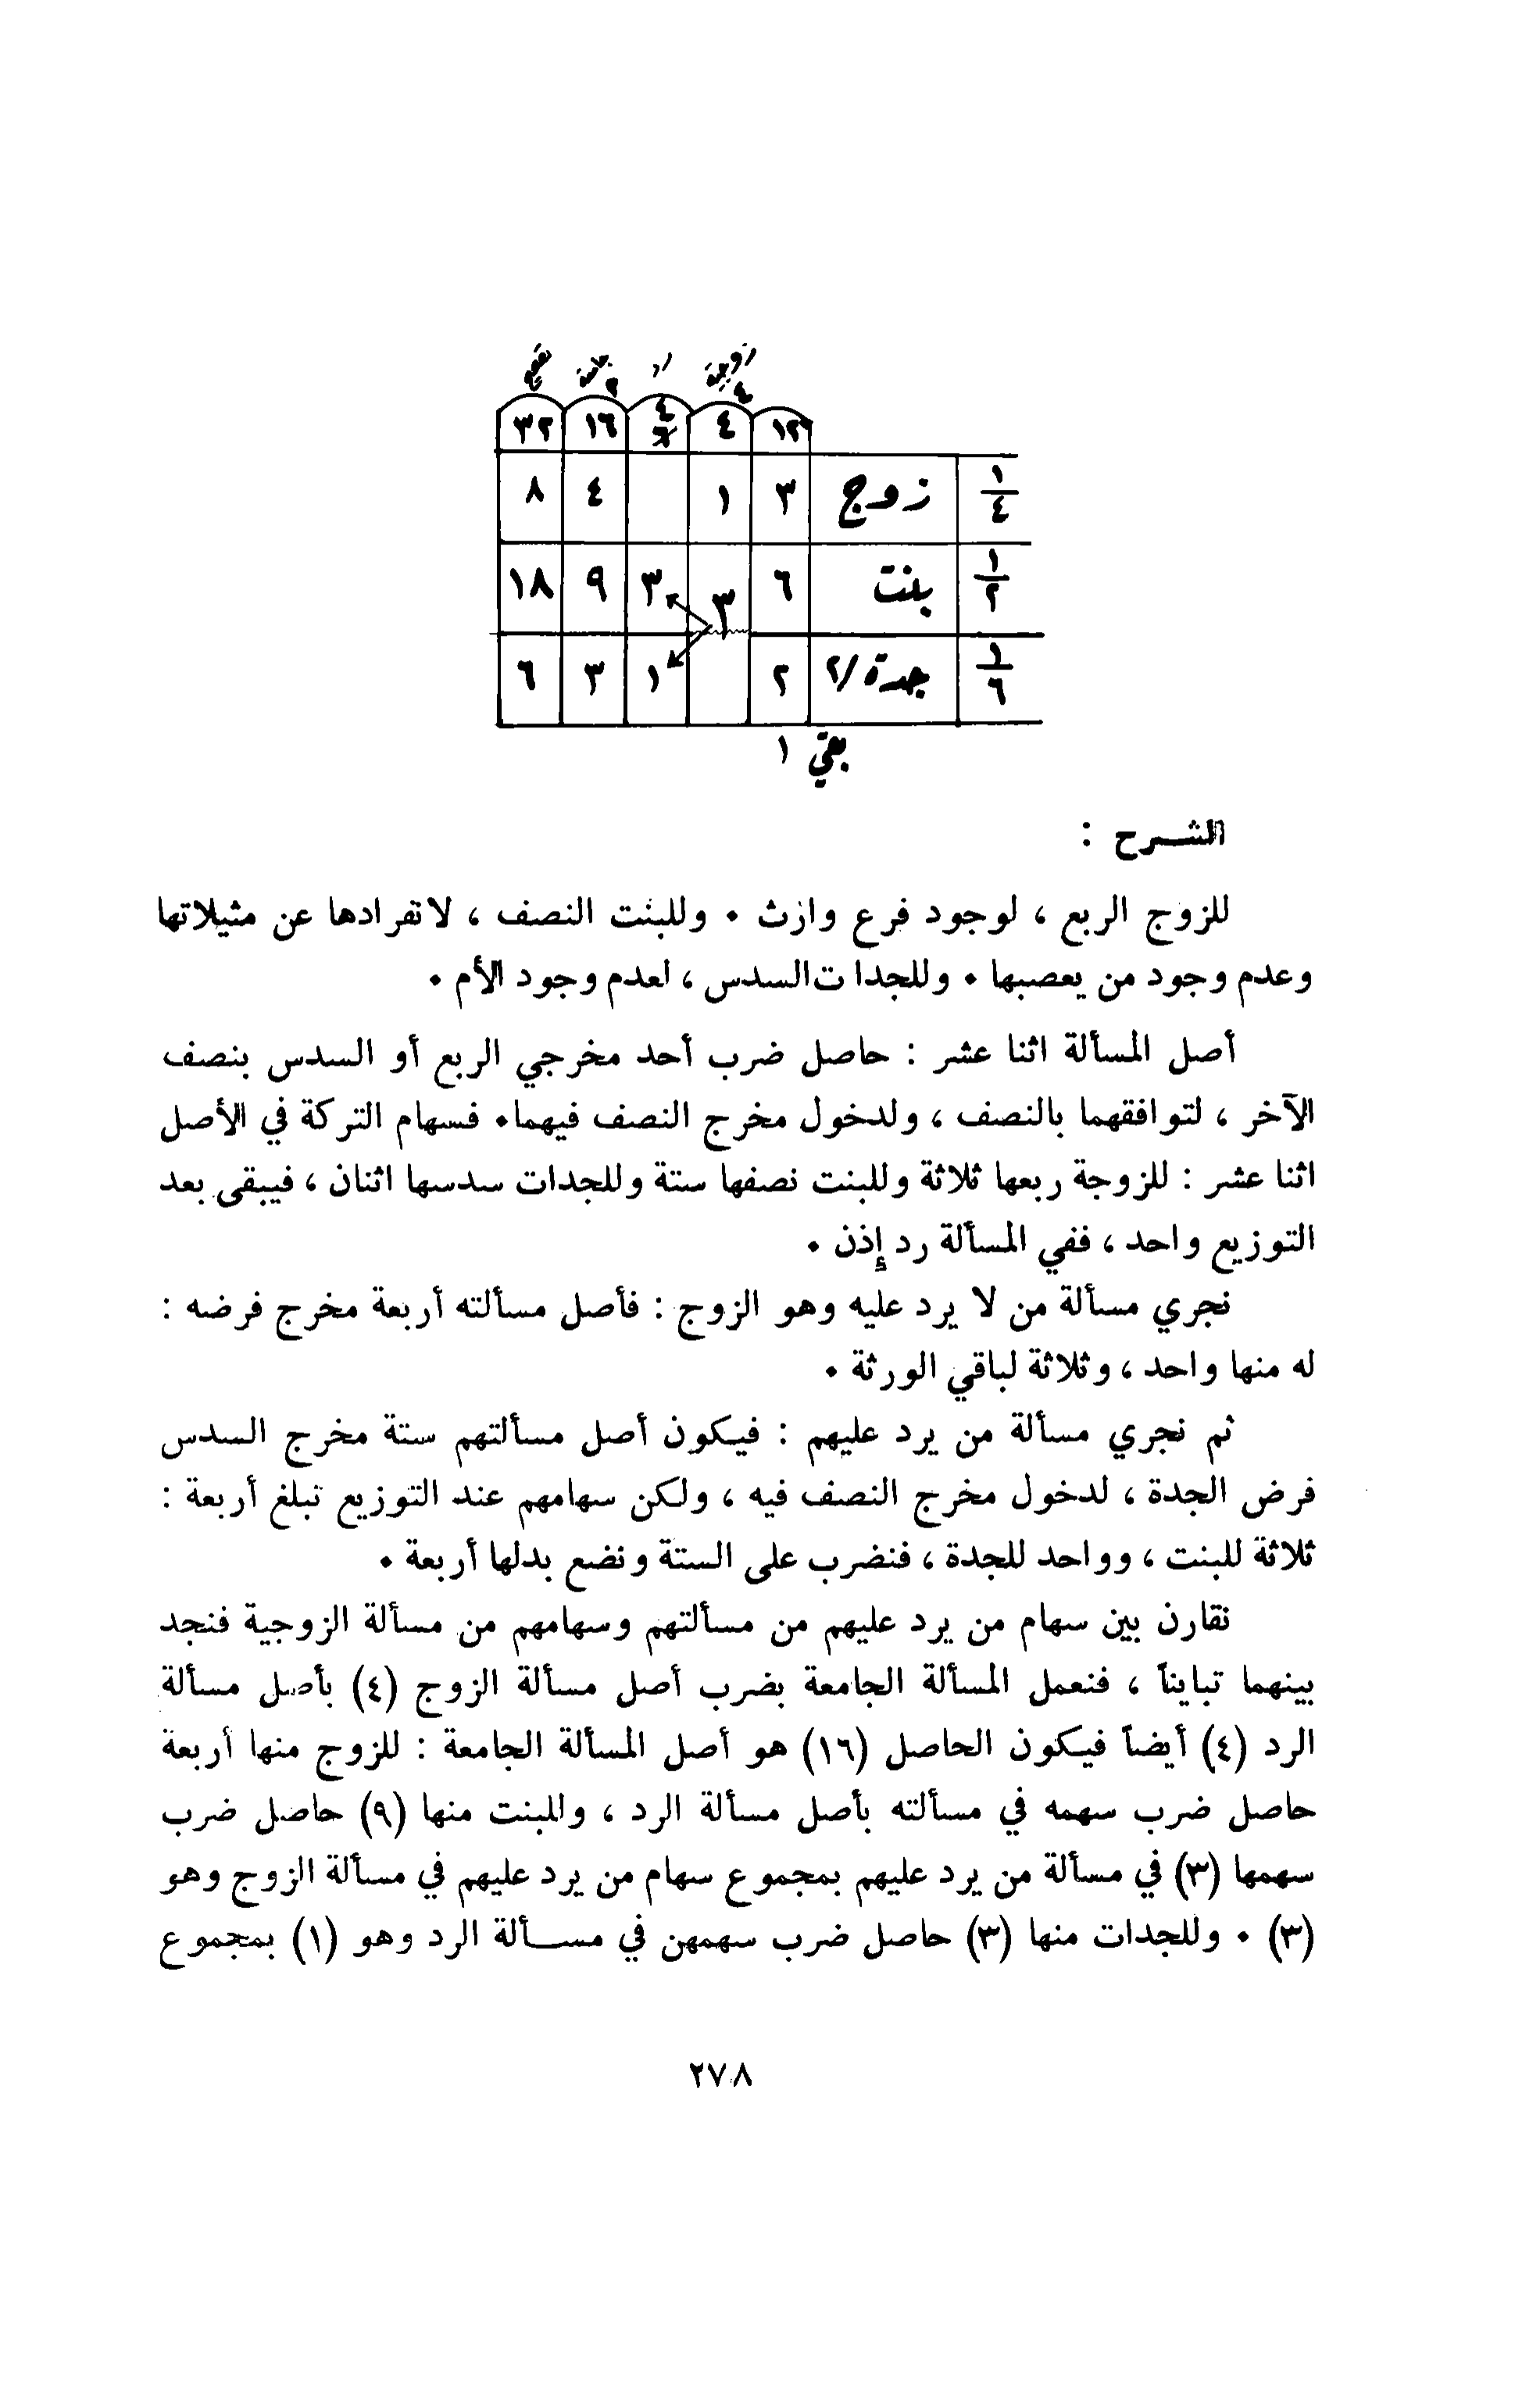 زوجية رد جامعة تصحيح
٤ ٢
١٢ ٤ ٤ ٦ ١٦ ٣٢
١/٤ زوج ٣ ١ ٤ ٨
١/٢ بنت ٦ ٣ ٣ ٩ ١٨
١/٦ جدة/٢ ٢ ١ ٣ ٦
بقي ١
الشرح :
للزوج الربع ، لوجود فرع وارث . وللبنت النصف ، لانفرادها عن مثيلاتها
وعدم وجود من يعصبها . وللجدات السدس ، لعدم وجود الأم .
أصل المسألة اثنا عشر : حاصل ضرب أحد مخرجي الربع أو السدس بنصف
الآخر ، لتوافقهما بالنصف ، ولدخول مخرج النصف فيهما. فسهام التركة في الأصل
اثنا عشر : للزوجة ربعها ثلاثة وللبنت نصفها ستة وللجدات سدسها اثنان ، فيبقى بعد
التوزيع واحد ، ففي المسألة رد إذن .
نجري مسألة من لا يرد عليه وهو الزوج : فأصل مسألته أربعة مخرج فرضه :
له منها واحد ، وثلاثة لباقي الورثة .
ثم نجري مسألة من يرد عليهم : فيكون أصل مسألتهم ستة مخرج السدس
فرض الجدة ، لدخول مخرج النصف فيه ، ولكن سهامهم عند التوزيع تبلغ أربعة :
ثلاثة للبنت ، وواحد للجدة ، فنضرب على الستة ونضع بدلها أربعة .
نقارن بين سهام من يرد عليهم من مسألتهم وسهامهم من مسألة الزوجية فنجد
بينهما تبايناً ، فنعمل المسألة الجامعة بضرب أصل مسألة الزوج (٤) بأصل مسألة
الرد (٤) أيضاً فيكون الحاصل (١٦) هو أصل المسألة الجامعة : للزوج منها أربعة
حاصل ضرب سهمه في مسألته بأصل مسألة الرد ، وللبنت منها (٩) حاصل ضرب
سهمها (٣) في مسألة من يرد عليهم بمجموع سهام من يرد عليهم في مسألة الزوج وهو
(٣) . وللجدات منها (٣) حاصل ضرب سهمهن في مســألة الرد وهو (١) بمجموع
٢٧٨